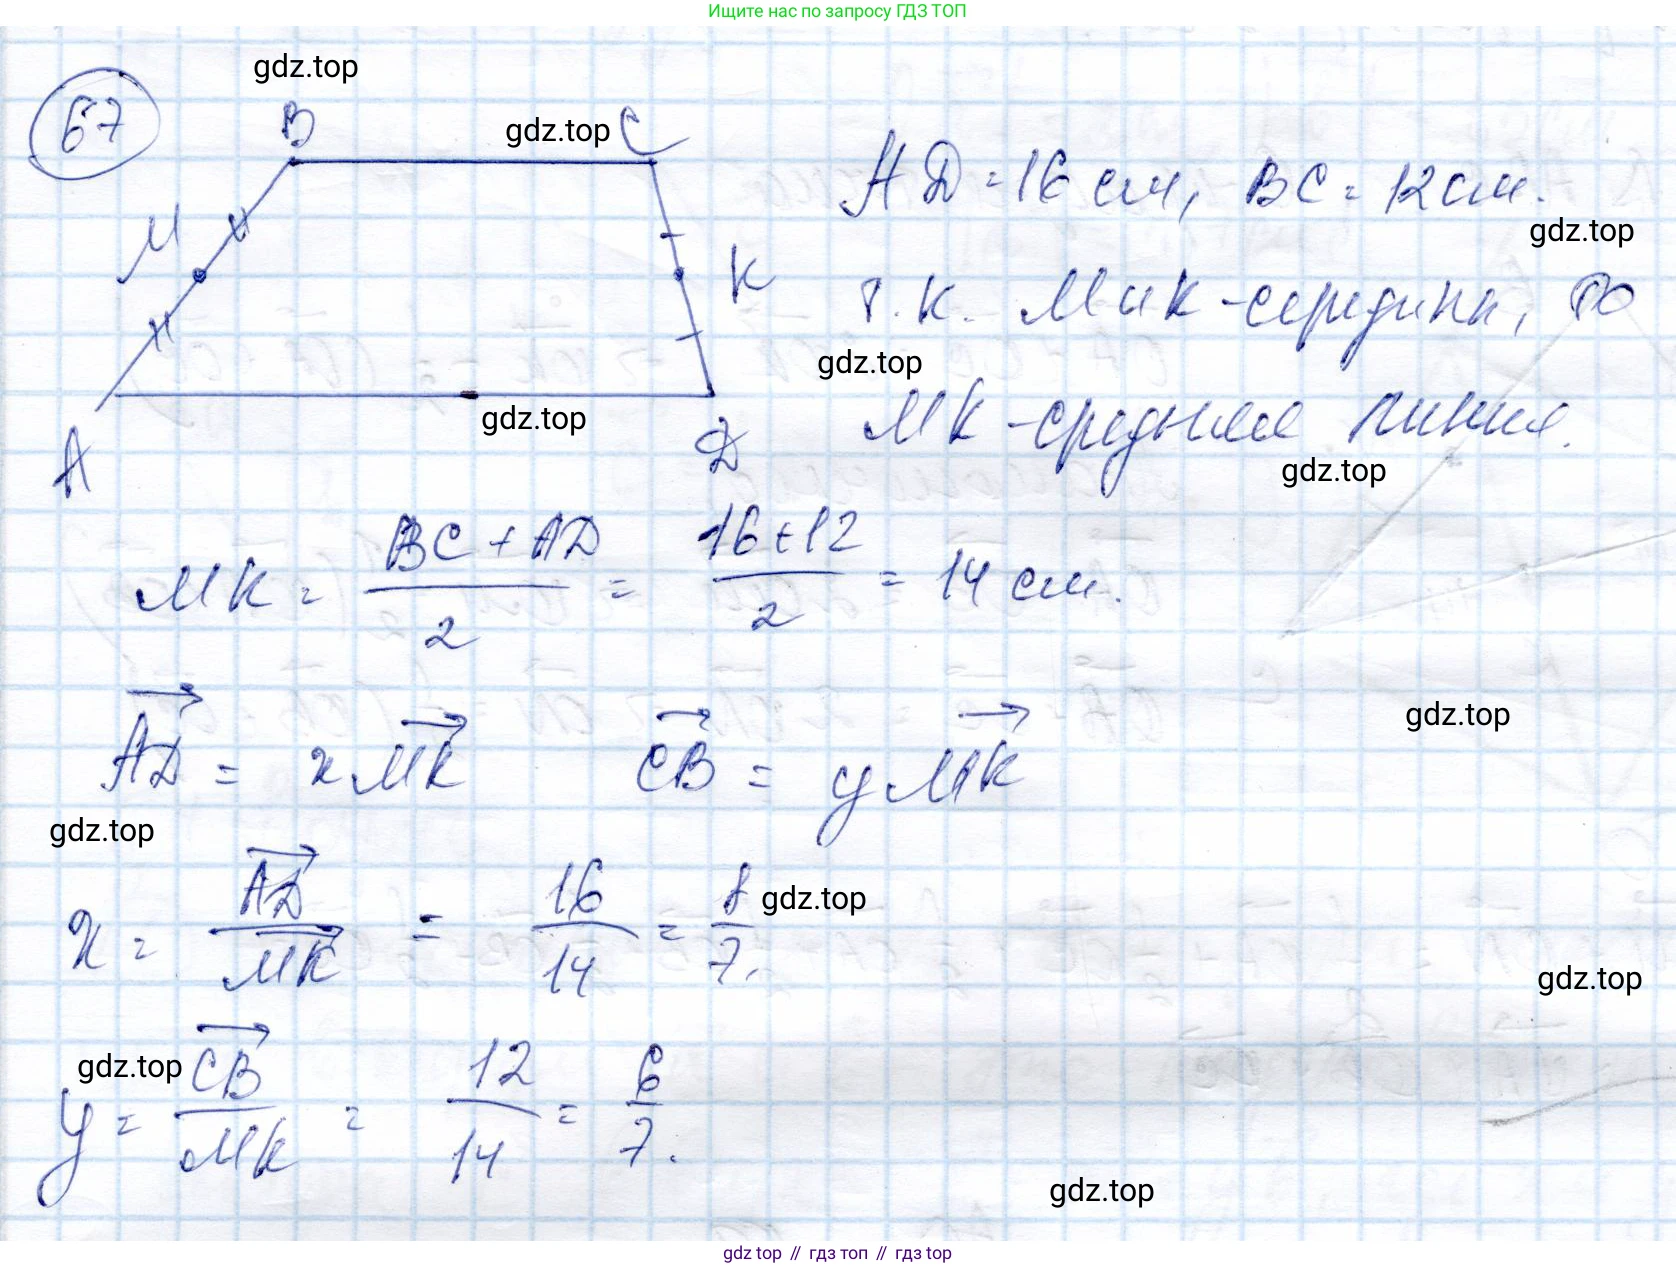 Ищите нас по запросу ГДЗ ТОП
67
gdz.top
B
gdz.top
C
AD = 16 см, BC = 12 см.
gdz.top
M
K
т.к. M и K - середины, то
gdz.top
MK - средняя линия.
gdz.top
gdz.top
A
D
MK = BC + AD / 2 = 16 + 12 / 2 = 14 см.
AD = x MK CB = y MK
gdz.top
gdz.top
x = AD / MK = 16 / 14 = 8 / 7.
gdz.top
gdz.top
y = CB / MK = 12 / 14 = 6 / 7.
gdz.top
gdz.top
gdz top // гдз топ // гдз top